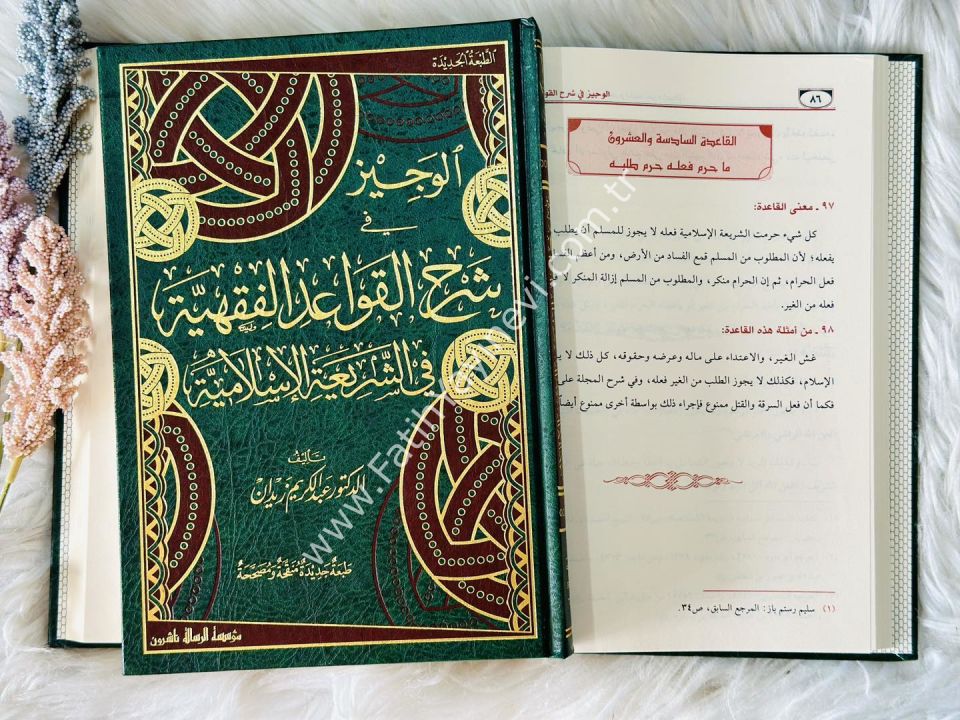 الطبعة الجديدة
الوجيز
في
شرح القواعد الفقهية
في الشريعة الإسلامية
تأليف
الدكتور عبد الكريم زيدان
طبعة جديدة منقحة ومصححة
مؤسسة الرسالة ناشرون
٨٦
الوجيز في شرح القو
القاعدة السادسة والعشرون
ما حرم فعله حرم طلبه
٩٧ ـ معنى القاعدة:
كل شيء حرمت الشريعة الإسلامية فعله لا يجوز للمسلم أن يطلب
بفعله؛ لأن المطلوب من المسلم قمع الفساد من الأرض، ومن أعظم
فعل الحرام، ثم إن الحرام منكر، والمطلوب من المسلم إزالة المنكر لا
فعله من الغير.
٩٨ ـ من أمثلة هذه القاعدة:
غش الغير، والاعتداء على ماله وعرضه وحقوقه، كل ذلك لا
الإسلام، فكذلك لا يجوز الطلب من الغير فعله، وفي شرح المجلة على
فكما أن فعل السرقة والقتل ممنوع فإجراء ذلك بواسطة أخرى ممنوع أيضاً
(١) سليم رستم باز: المرجع السابق، ص٣٤.
www.Fatihyayinevi.com.tr